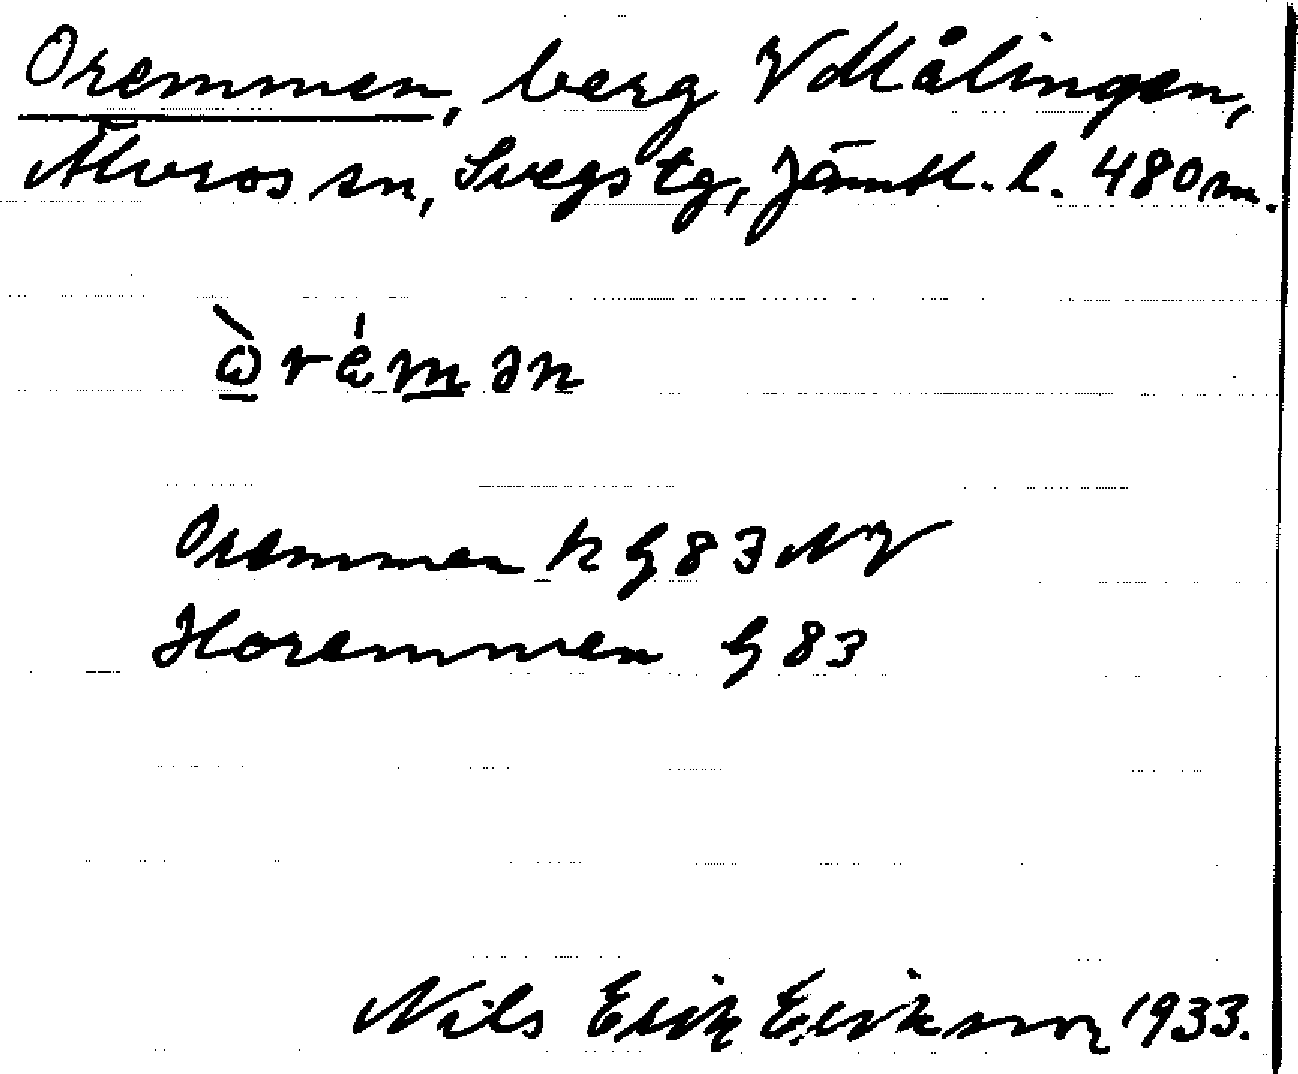 Oremmen, berg V Målingen,
Älvros sn, Svegs tg, Jämtl. l. 480 m.
òrém̲ən
Oremmen k G 83 NV
Horemmen G 83
Nils Erik Eriksson 1933.